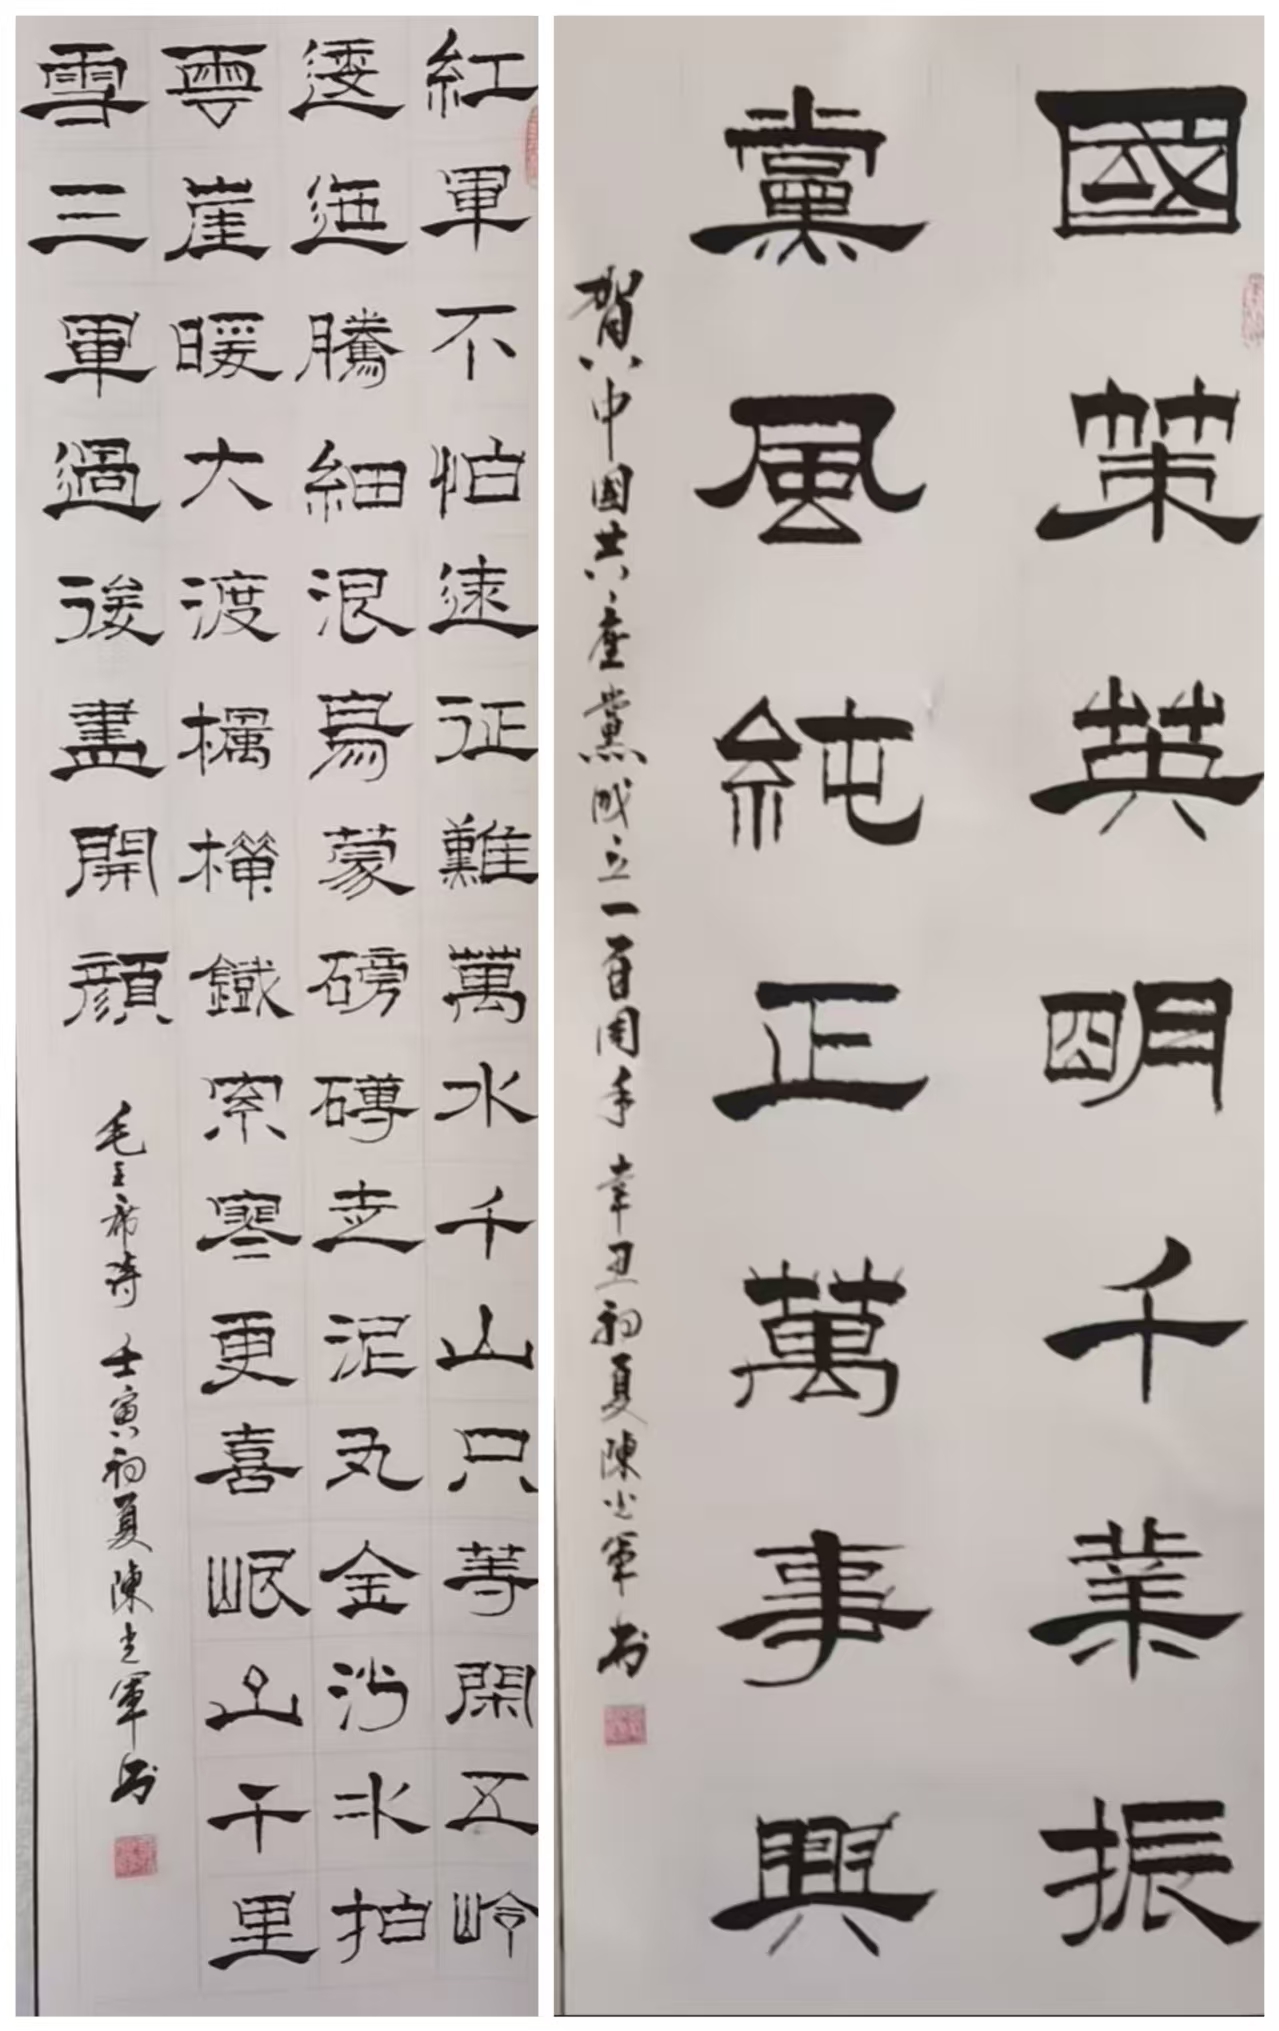 紅軍不怕遠征難萬水千山只等閑五岭
逶迤騰細浪烏蒙磅礡走泥丸金沙水拍
雲崖暖大渡橋橫鐵索寒更喜岷山千里
雪三軍過後盡開顏
毛主席詩 壬寅初夏陳光軍书
國策英明千業振
黨風純正萬事興
賀中國共產黨成立一百周年 辛丑初夏陳光軍书